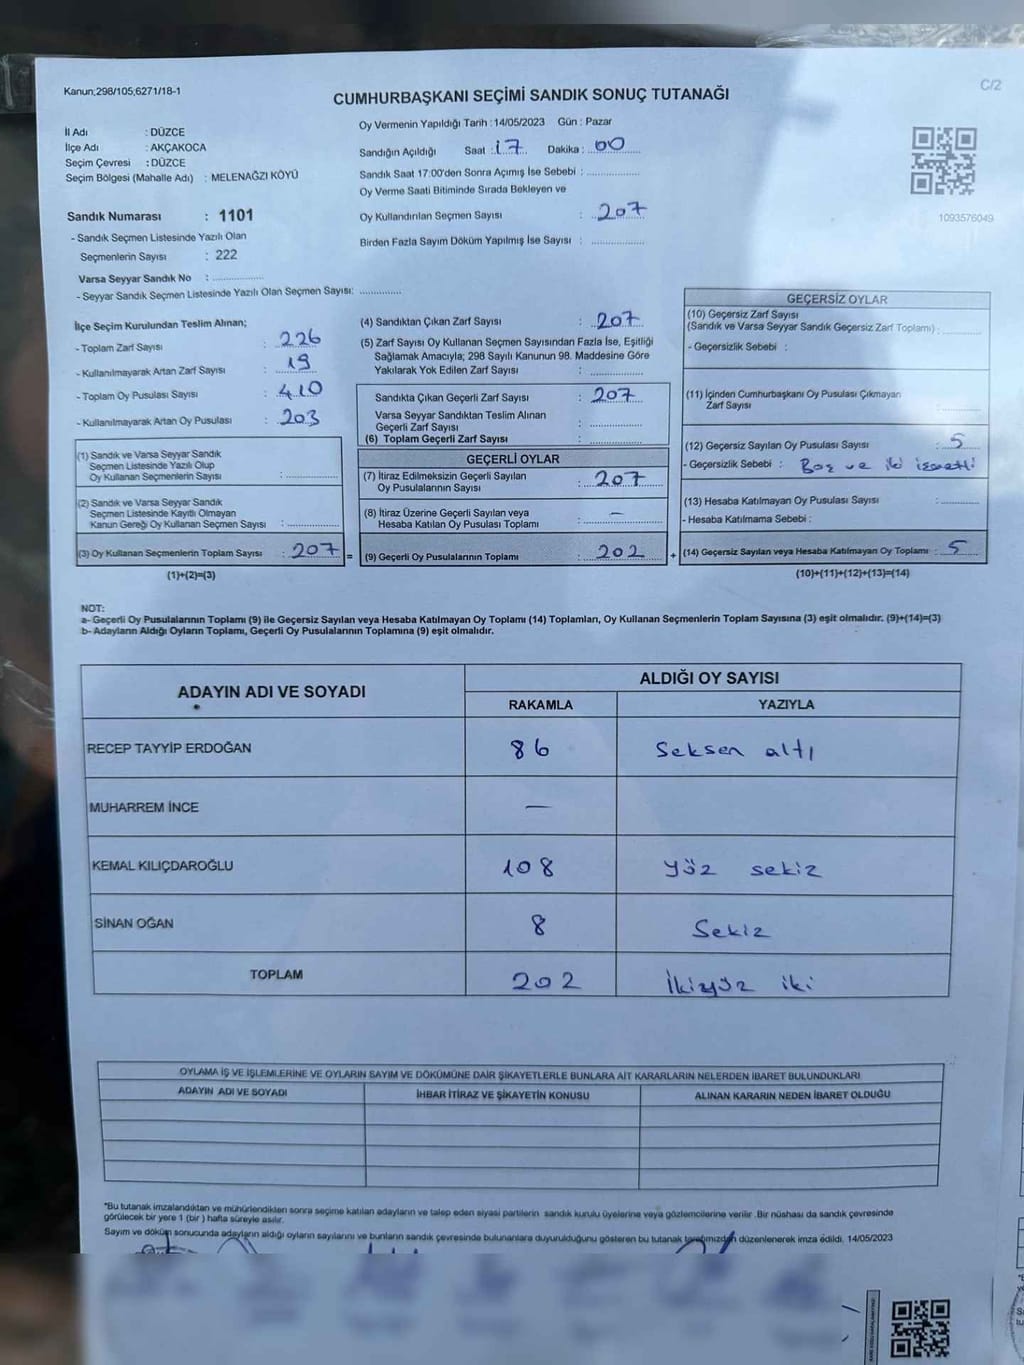 Kanun;298/105,6271/18-1
C/2
CUMHURBAŞKANI SEÇİMİ SANDIK SONUÇ TUTANAĞI
İl Adı : DÜZCE
İlçe Adı : AKÇAKOCA
Seçim Çevresi : DÜZCE
Seçim Bölgesi (Mahalle Adı) : MELENAĞZI KÖYÜ
Sandık Numarası : 1101
- Sandık Seçmen Listesinde Yazılı Olan
Seçmenlerin Sayısı : 222
Varsa Seyyar Sandık No : ................
- Seyyar Sandık Seçmen Listesinde Yazılı Olan Seçmen Sayısı: .............
Oy Vermenin Yapıldığı Tarih : 14/05/2023 Gün : Pazar
Sandığın Açıldığı Saat : 17 Dakika : 00
Sandık Saat 17:00'den Sonra Açımış İse Sebebi : ................
Oy Verme Saati Bitiminde Sırada Bekleyen ve
Oy Kullandırılan Seçmen Sayısı : 207
Birden Fazla Sayım Döküm Yapılmış İse Sayısı : ................
1093576049
İlçe Seçim Kurulundan Teslim Alınan;
- Toplam Zarf Sayısı : 226
- Kullanılmayarak Artan Zarf Sayısı : 19
- Toplam Oy Pusulası Sayısı : 410
- Kullanılmayarak Artan Oy Pusulası : 203
(1) Sandık ve Varsa Seyyar Sandık
Seçmen Listesinde Yazılı Olup
Oy Kullanan Seçmenlerin Sayısı : ................
(2) Sandık ve Varsa Seyyar Sandık
Seçmen Listesinde Kayıtlı Olmayan
Kanun Gereği Oy Kullanan Seçmen Sayısı : ................
(3) Oy Kullanan Seçmenlerin Toplam Sayısı : 207 =
(1)+(2)=(3)
(4) Sandıktan Çıkan Zarf Sayısı : 207
(5) Zarf Sayısı Oy Kullanan Seçmen Sayısından Fazla İse, Eşitliği
Sağlamak Amacıyla; 298 Sayılı Kanunun 98. Maddesine Göre
Yakılarak Yok Edilen Zarf Sayısı : ................
Sandıkta Çıkan Geçerli Zarf Sayısı : 207
Varsa Seyyar Sandıktan Teslim Alınan
Geçerli Zarf Sayısı : ................
(6) Toplam Geçerli Zarf Sayısı : ................
GEÇERLİ OYLAR
(7) İtiraz Edilmeksizin Geçerli Sayılan
Oy Pusulalarının Sayısı : 207
(8) İtiraz Üzerine Geçerli Sayılan veya
Hesaba Katılan Oy Pusulası Toplamı : —
(9) Geçerli Oy Pusulalarının Toplamı : 202 +
GEÇERSİZ OYLAR
(10) Geçersiz Zarf Sayısı
(Sandık ve Varsa Seyyar Sandık Geçersiz Zarf Toplamı) : ............
- Geçersizlik Sebebi :
(11) İçinden Cumhurbaşkanı Oy Pusulası Çıkmayan
Zarf Sayısı : ............
(12) Geçersiz Sayılan Oy Pusulası Sayısı : 5
- Geçersizlik Sebebi : Boş ve iki işaretli
(13) Hesaba Katılmayan Oy Pusulası Sayısı : ............
- Hesaba Katılmama Sebebi :
(14) Geçersiz Sayılan veya Hesaba Katılmayan Oy Toplamı : 5
(10)+(11)+(12)+(13)=(14)
NOT:
a- Geçerli Oy Pusulalarının Toplamı (9) ile Geçersiz Sayılan veya Hesaba Katılmayan Oy Toplamı (14) Toplamları, Oy Kullanan Seçmenlerin Toplam Sayısına (3) eşit olmalıdır. (9)+(14)=(3)
b- Adayların Aldığı Oyların Toplamı, Geçerli Oy Pusulalarının Toplamına (9) eşit olmalıdır.
ADAYIN ADI VE SOYADI
ALDIĞI OY SAYISI
RAKAMLA YAZIYLA
RECEP TAYYİP ERDOĞAN 86 Seksen altı
MUHARREM İNCE —
KEMAL KILIÇDAROĞLU 108 yüz sekiz
SİNAN OĞAN 8 Sekiz
TOPLAM 202 İkiyüz iki
OYLAMA İŞ VE İŞLEMLERİNE VE OYLARIN SAYIM VE DÖKÜMÜNE DAİR ŞİKAYETLERLE BUNLARA AİT KARARLARIN NELERDEN İBARET BULUNDUKLARI
ADAYIN ADI VE SOYADI İHBAR İTİRAZ VE ŞİKAYETİN KONUSU ALINAN KARARIN NEDEN İBARET OLDUĞU
*Bu tutanak imzalandıktan ve mühürlendikten sonra seçime katılan adayların ve talep eden siyasi partilerin sandık kurulu üyelerine veya gözlemcilerine verilir .Bir nüshası da sandık çevresinde
görülecek bir yere 1 (bir ) hafta süreyle asılır.
Sayım ve döküm sonucunda adayların aldığı oyların sayılarını ve bunların sandık çevresinde bulunanlara duyurulduğunu gösteren bu tutanak tarafımızdan düzenlenerek imza edildi. 14/05/2023